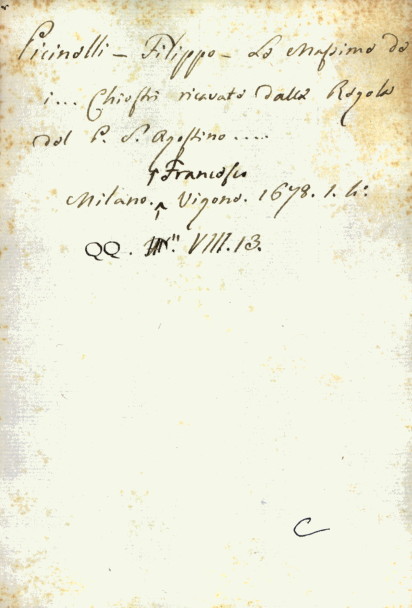 Picinelli - Filippo - Le Massime de
i... Chiostri ricavate dalla Regola
del P. S. Agostino....
Francesco
Milano. Vigone. 1678. 1. 4°.
QQ. VIII. 13.
C